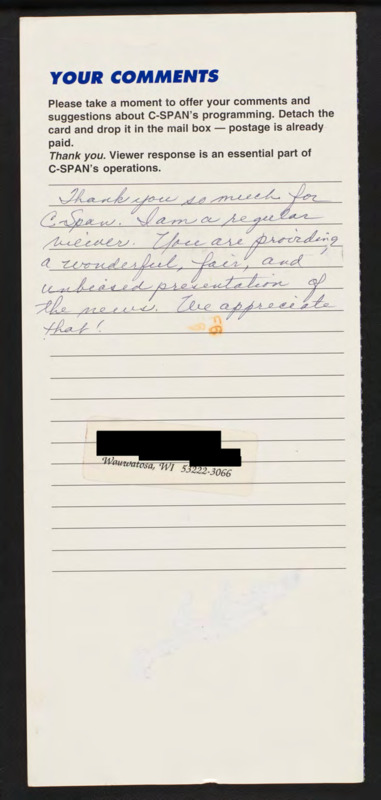 YOUR COMMENTS
Please take a moment to offer your comments and
suggestions about C-SPAN's programming. Detach the
card and drop it in the mail box — postage is already
paid.
Thank you. Viewer response is an essential part of
C-SPAN's operations.
Thank you so much for
C-Span. I am a regular
viewer. You are providing
a wonderful, fair, and
unbiased presentation of
the news. We appreciate
that!
Wauwatosa, WI 53222-3066